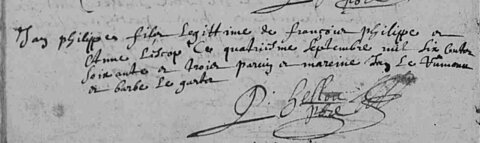 Jan philippes filz Legittime de françois philippe et
Anne Liscop Ce quatriesme septembre mil six centz
soixante et troix parein et mareine Jan Le
et barbe Le
P.
pbre